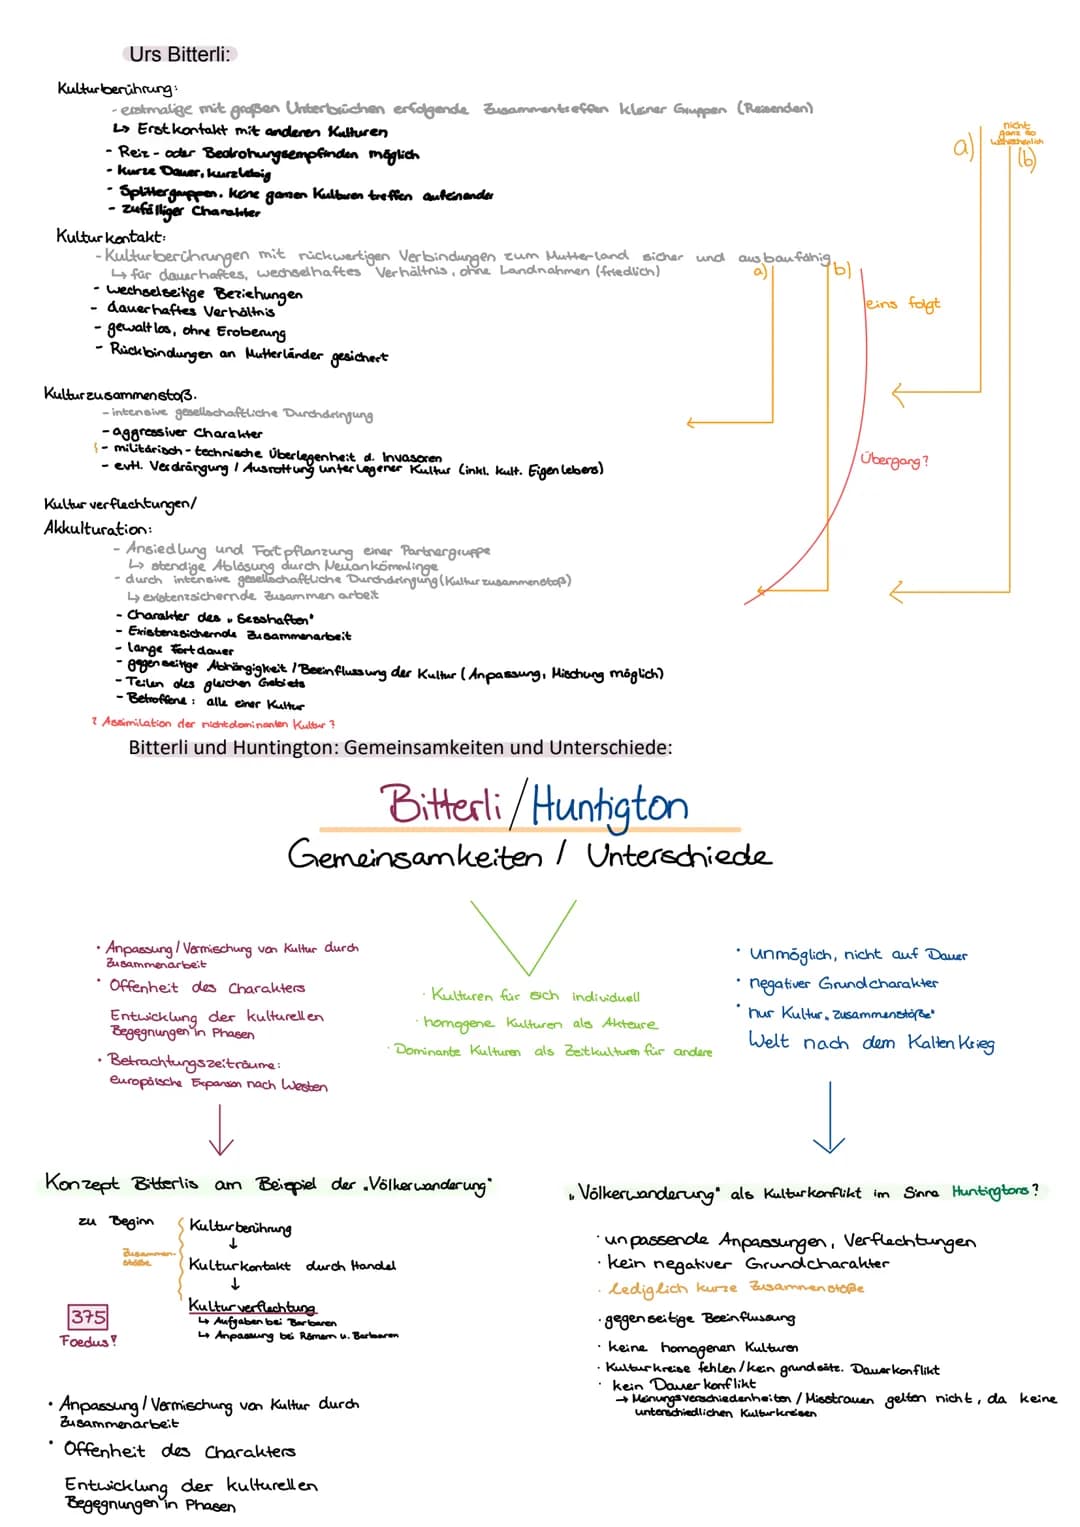 Urs Bitterli:
Kulturberührung:
- erstmalige mit großen Unterbrüchen erfolgende Zusammentreffen kleiner Gruppen (Reisenden)
↳ Erstkontakt mit anderen Kulturen
- Reiz- oder Bedrohungsempfinden möglich
- kurze Dauer, kurzlebig
- Splittergruppen, keine ganzen Kulturen treffen aufeinander
- zufälliger Charakter
a)
nicht
ganz so
wahrscheinlich
(b)
Kulturkontakt:
- Kulturberührungen mit rückwertigen Verbindungen zum Mutterland sicher und ausbaufähig
↳ für dauerhaftes, wechselhaftes Verhältnis, ohne Landnahmen (friedlich)
- wechselseitige Beziehungen
- dauerhaftes Verhältnis
- gewaltlos, ohne Eroberung
- Rückbindungen an Mutterländer gesichert
a)
b)
eins folgt
Kulturzusammenstoß.
- intensive gesellschaftliche Durchdringung
- aggressiver Charakter
- militärisch-technische Überlegenheit d. Invasoren
- evtl. Verdrängung / Ausrottung unterlegener Kultur (inkl. kult. Eigenlebens)
Übergang?
Kulturverflechtungen/
Akkulturation:
- Ansiedlung und Fortpflanzung einer Partnergruppe
↳ stendige Ablösung durch Neuankömmlinge
- durch intensive gesellschaftliche Durchdringung (Kulturzusammenstoß)
↳ existenzsichernde Zusammenarbeit
- Charakter des „Sesshaften"
- Existenzsichernde Zusammenarbeit
- lange Fortdauer
- gegenseitige Abhängigkeit / Beeinflussung der Kultur (Anpassung, Mischung möglich)
- Teilen des gleichen Gebiets
- Betroffene: alle einer Kultur
? Assimilation der nichtdominanten Kultur?
Bitterli und Huntington: Gemeinsamkeiten und Unterschiede:
Bitterli / Huntigton
Gemeinsamkeiten / Unterschiede
• Anpassung / Vermischung von Kultur durch
Zusammenarbeit
• Offenheit des Charakters
Entwicklung der kulturellen
Begegnungen in Phasen
• Betrachtungszeiträume:
europäische Expansion nach Westen
· Kulturen für sich individuell
· homogene Kulturen als Akteure
· Dominante Kulturen als Zeitkulturen für andere
• unmöglich, nicht auf Dauer
• negativer Grundcharakter
• nur Kultur„zusammenstöße"
Welt nach dem Kalten Krieg
Konzept Bitterlis am Beispiel der „Völkerwanderung"
zu Beginn
Kulturberührung
↓
Zusammen-
stöße
Kulturkontakt durch Handel
↓
Kulturverflechtung
↳ Aufgaben bei Barbaren
↳ Anpassung bei Römern u. Barbaren
375
Foedus?
• Anpassung / Vermischung von Kultur durch
Zusammenarbeit
• Offenheit des Charakters
Entwicklung der kulturellen
Begegnungen in Phasen
„Völkerwanderung" als Kulturkonflikt im Sinne Huntingtons?
· unpassende Anpassungen, Verflechtungen
· kein negativer Grundcharakter
· lediglich kurze Zusammenstöße
· gegenseitige Beeinflussung
· keine homogenen Kulturen
· Kulturkreise fehlen / kein grundsätz. Dauerkonflikt
· kein Dauerkonflikt
→ Meinungsverschiedenheiten / Misstrauen gelten nicht, da keine
unterschiedlichen Kulturkreisen